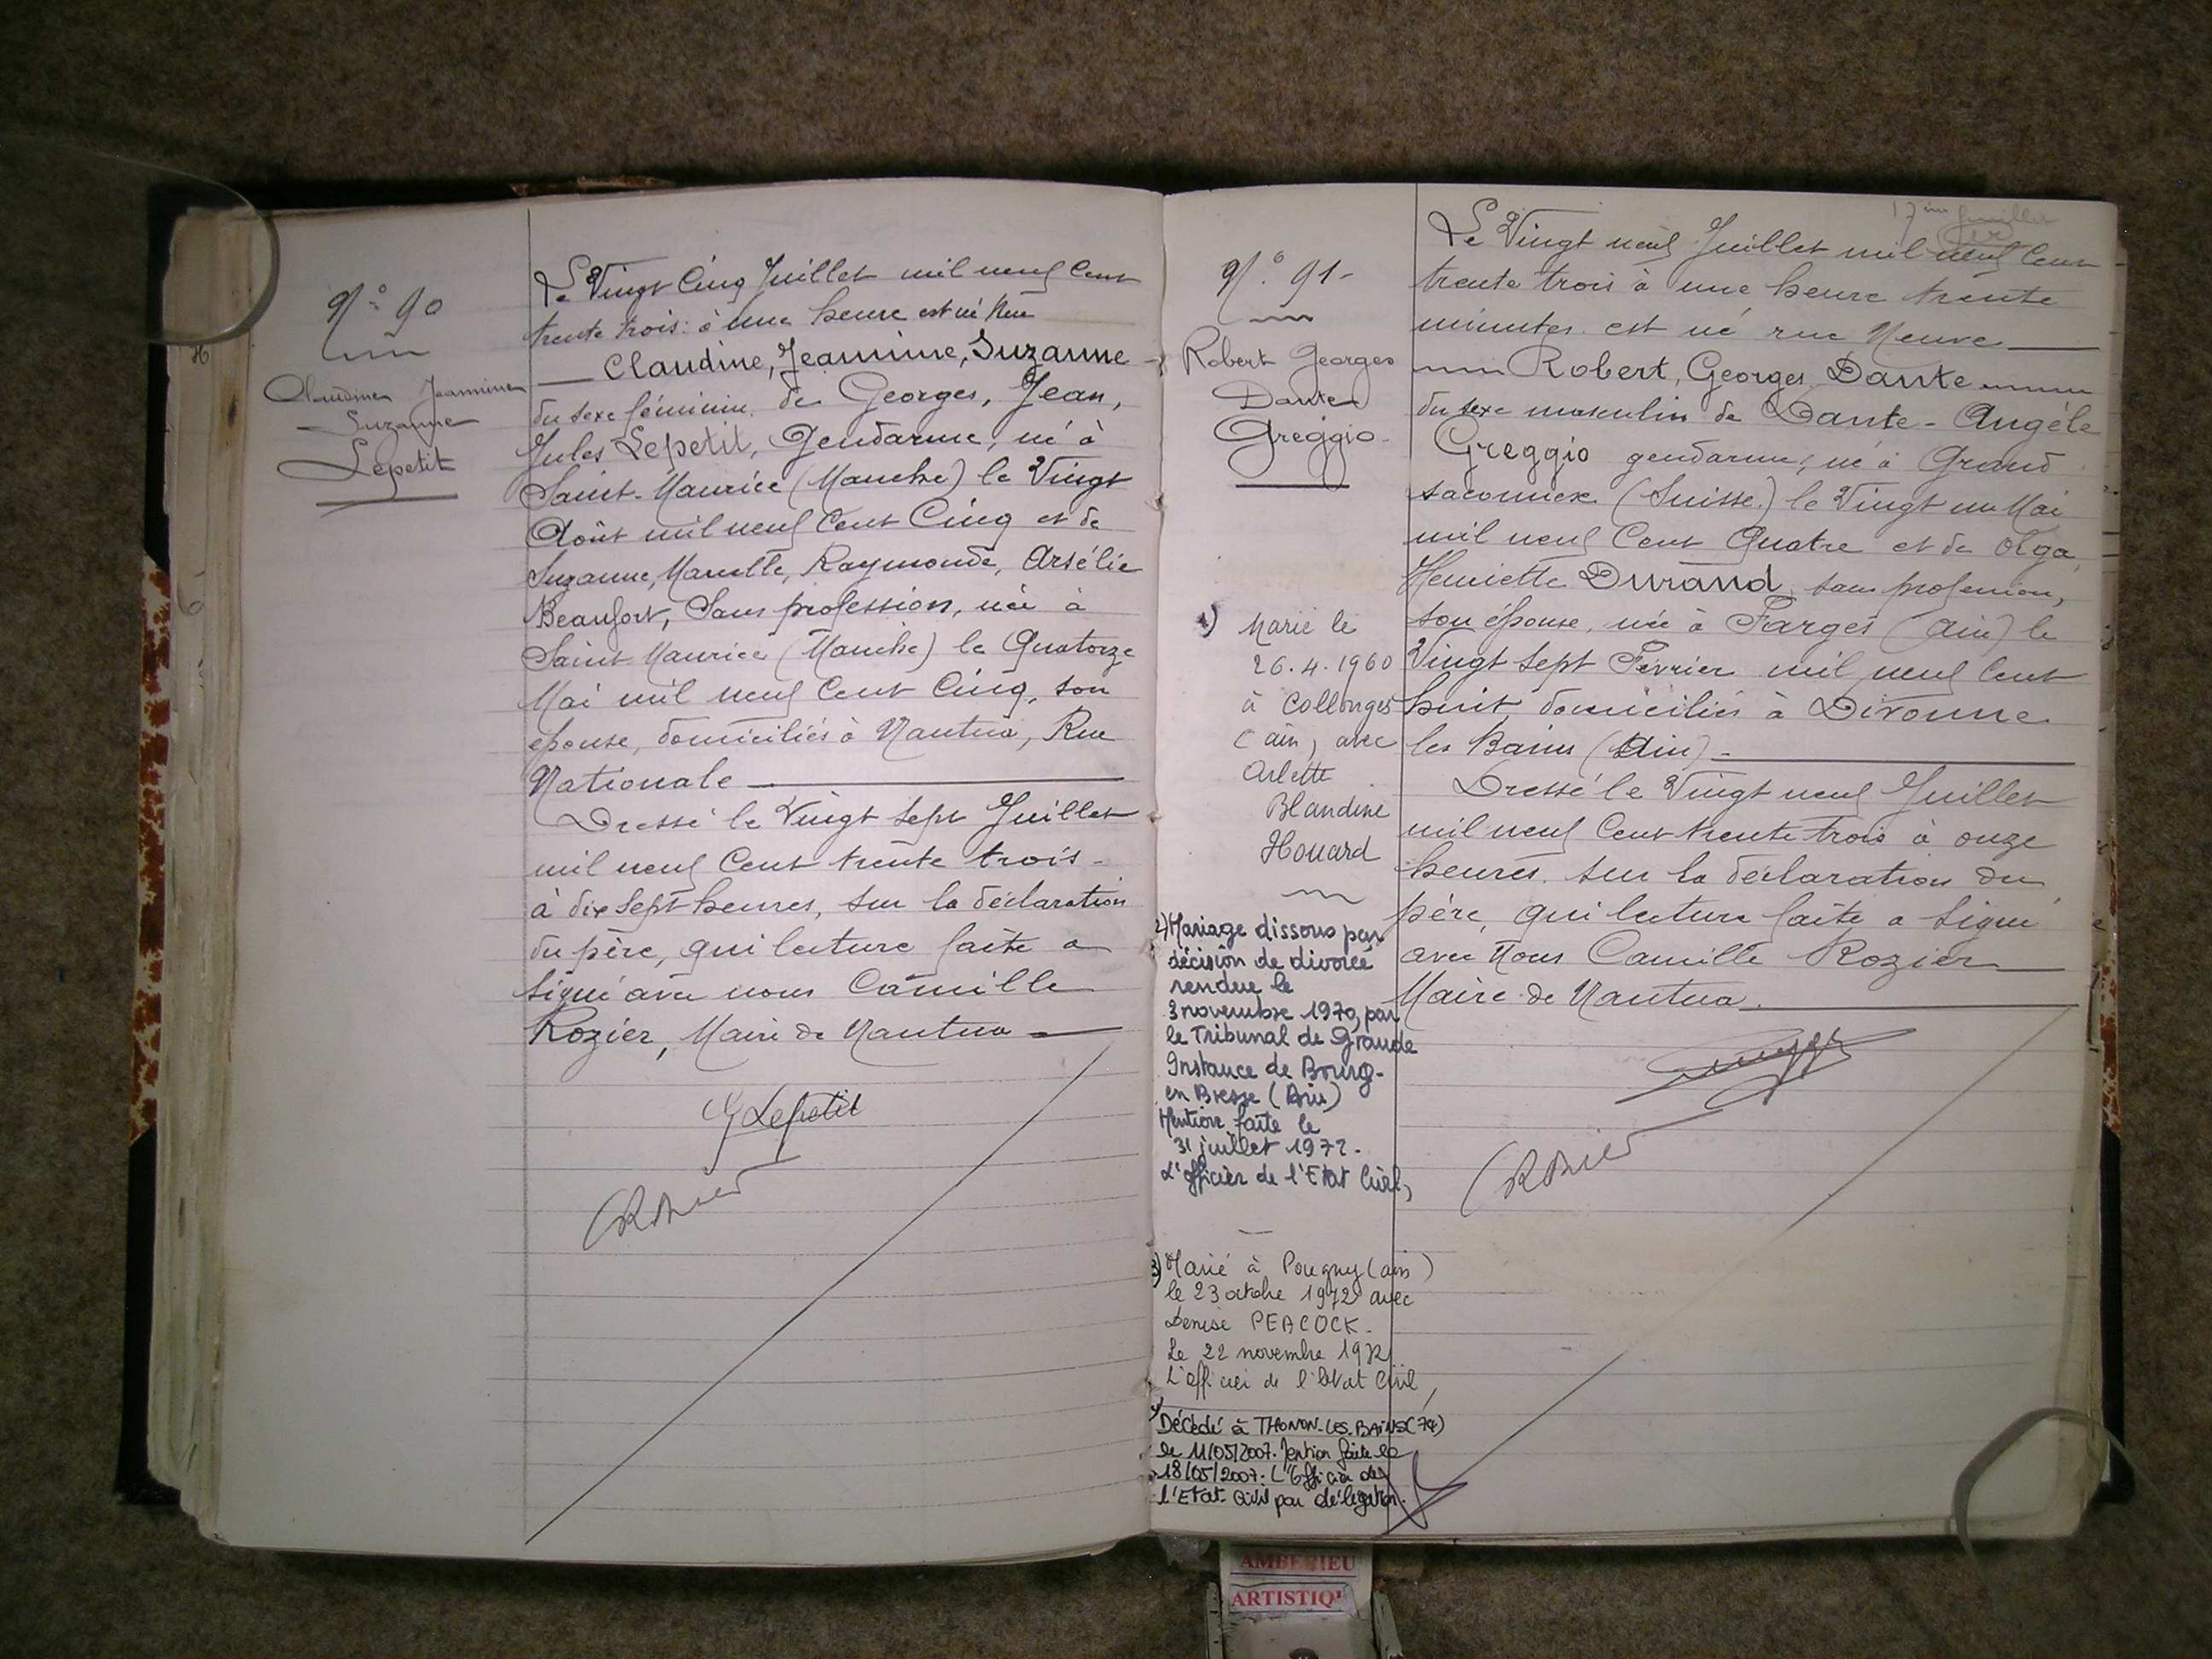 N° 90
Claudine Jeannine
Suzanne
Lepetit
Le Vingt Cinq Juillet mil neuf Cent
trente trois: à une heure est né Rue
Claudine, Jeannine, Suzanne
du sexe féminin, de Georges, Jean,
Jules Lepetit, Gendarme, né à
Saint-Maurice (Manche) le Vingt
Août mil neuf Cent Cinq et de
Suzanne, Marcelle, Raymonde, Arsélie
Beaufort, Sans profession, née à
Saint Maurice (Manche) le Quatorze
Mai mil neuf Cent Cinq, son
épouse, domiciliés à Nantua, Rue
Nationale
Dressé le Vingt Sept Juillet
mil neuf Cent trente trois-
à dix sept heures, sur la déclaration
du père, qui lecture faite a
Signé avec nous Camille
Rozier, Maire de Nantua
G Lepetit
17ème feuillet
N° 91-
Robert Georges
Dante
Greggio-
Le Vingt neuf Juillet mil neuf Cent
trente trois à une heure trente
minutes est né rue Neuve
Robert, Georges, Dante
du sexe masculin de Dante-Angèle
Greggio gendarme, né à Grand
saconnex (Suisse) le Vingt un Mai
mil neuf Cent Quatre et de Olga,
Henriette Durand, sans profession,
son épouse, née à Farges (Ain) le
Vingt sept Février mil neuf Cent
huit, domiciliés à Divonne
les Bains (Ain)-
Dressé le Vingt neuf Juillet
mil neuf Cent trente trois à onze
heures, sur la déclaration du
père, qui lecture faite a Signé
avec Nous Camille Rozier
Maire de Nantua.
1) Marié le
26.4.1960
à Collonges
(Ain) avec
Arlette
Blandine
Houard
2) Mariage dissous par
décision de divorce
rendue le
3 novembre 1970, par
le Tribunal de Grande
Instance de Bourg-
en Bresse (Ain)
Mention faite le
31 juillet 1972.
L'officier de l'Etat Civil,
3) Marié à Pougny (ain)
le 23 octobre 1972 avec
Denise PEACOCK-
Le 22 novembre 1972
L'officier de l'Etat Civil,
4) Décédé à THONON-LES-BAINS (74)
le 11/05/2007. Mention faite le
18/05/2007. L'Officier de
l'Etat-Civil par délégation.
AMBERIEU
ARTISTIQ